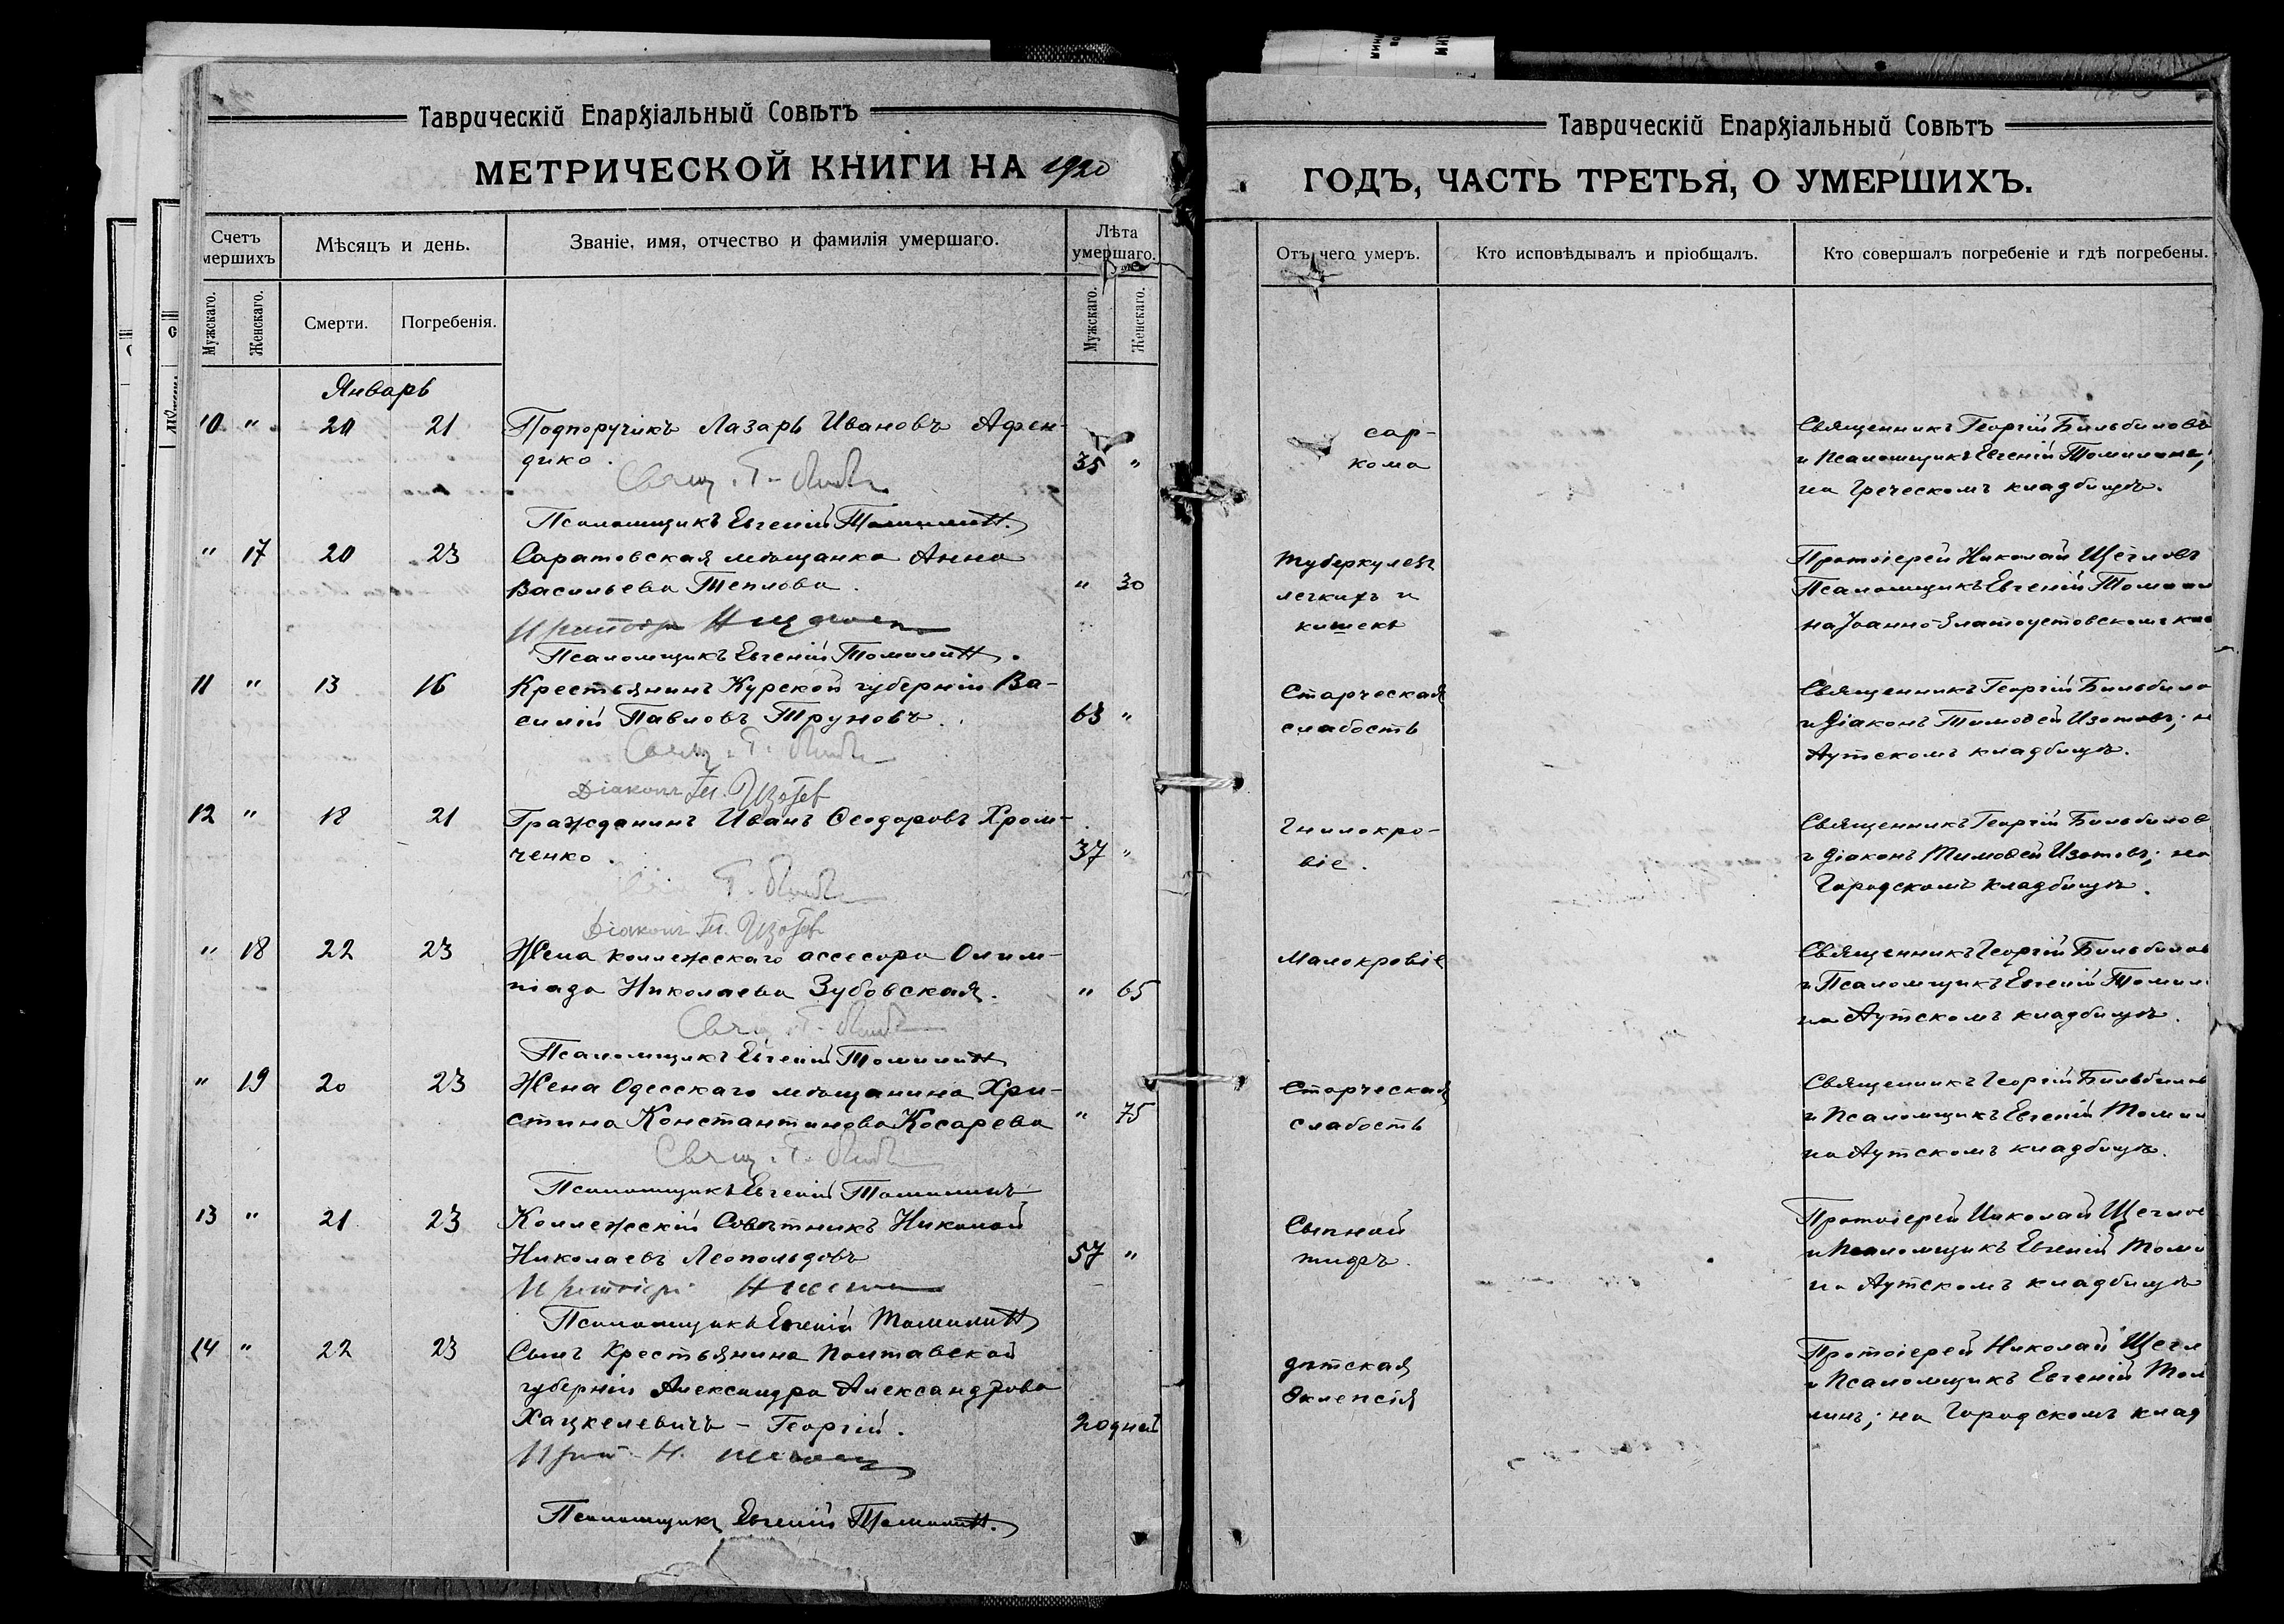 Таврическій Епархіальный Совѣтъ
МЕТРИЧЕСКОЙ КНИГИ НА 1920
Счетъ мершихъ
Мѣсяцъ и день.
Званіе, имя, отчество и фамилія умершаго.
Лѣта умершаго.
Мужскаго.
Женскаго.
Смерти.
Погребенія.
Мужскаго.
Женскаго.
Январь
10 " 20 21 Подпоручикъ Лазарь Ивановъ Афен-
дико. 35 "
Свящ. Г.
Псаломщикъ Евгеній Томилинъ
" 17 20 23 Саратовская мѣщанка Анна
Васильева Теплова. " 30
Псаломщикъ Евгеній Томилинъ.
11 " 13 16 Крестьянинъ Курской губерніи Ва-
силій Павловъ Труновъ. 63 "
Свящ. Г.
Діаконъ Тм. Изотов
12 " 18 21 Гражданинъ Иванъ Ѳеодоровъ Хром-
ченко. 37 "
Г.
Діаконъ Тм. Изотов
" 18 22 23 Жена коллежскаго ассесора Олим-
піада Николаева Зубовская. " 65
Свящ. Г.
Псаломщикъ Евгеній Томилинъ
" 19 20 23 Жена Одесскаго мѣщанина Хри-
стина Константинова Косарева " 75
Свящ. Г.
Псаломщикъ Евгеній Томилинъ
13 " 21 23 Коллежскій Совѣтникъ Николай
Николаевъ Леопольдовъ 57 "
Псаломщикъ Евгеній Томилинъ
14 " 22 23 Сынъ Крестьянина Полтавской
губерніи Александра Александрова
Хацкелевичъ - Георгій. 20 дней
Псаломщикъ Евгеній Томилинъ.
Таврическій Епархіальный Совѣтъ
ГОДЪ, ЧАСТЬ ТРЕТЬЯ, О УМЕРШИХЪ.
Отъ чего умеръ.
Кто исповѣдывалъ и пріобщалъ.
Кто совершалъ погребеніе и гдѣ погребены.
сар-
кома
Священникъ Георгій Бильбиловъ
и Псаломщикъ Евгеній Томилинъ;
на Греческомъ кладбищѣ.
Туберкулезъ
легкихъ и
кишекъ
Протоіерей Николай Щегловъ
Псаломщикъ Евгеній Томили
на Іоанно-Златоустовскомъ кла
Старческая
слабость
Священникъ Георгій Бильбило
и Діаконъ Тимоѳей Изотовъ; н
Аутскомъ кладбищѣ.
Гнилокро-
віе.
Священникъ Георгій Бильбилов
и Діаконъ Тимоѳей Изотовъ; на
Городскомъ кладбищѣ.
Малокровіе
Священникъ Георгій Бильбилов
и Псаломщикъ Евгеній Томил
на Аутскомъ кладбищѣ.
Старческая
слабость
Священникъ Георгій Бильбилов
и Псаломщикъ Евгеній Томил
на Аутскомъ кладбищѣ.
Сыпной
тифъ.
Протоіерей Николай Щеглов
и Псаломщикъ Евгеній Томи
на Аутскомъ кладбищѣ
дѣтская
эклепсія
Протоіерей Николай Щегл
и Псаломщикъ Евгеній Том
линъ; на Городскомъ клад